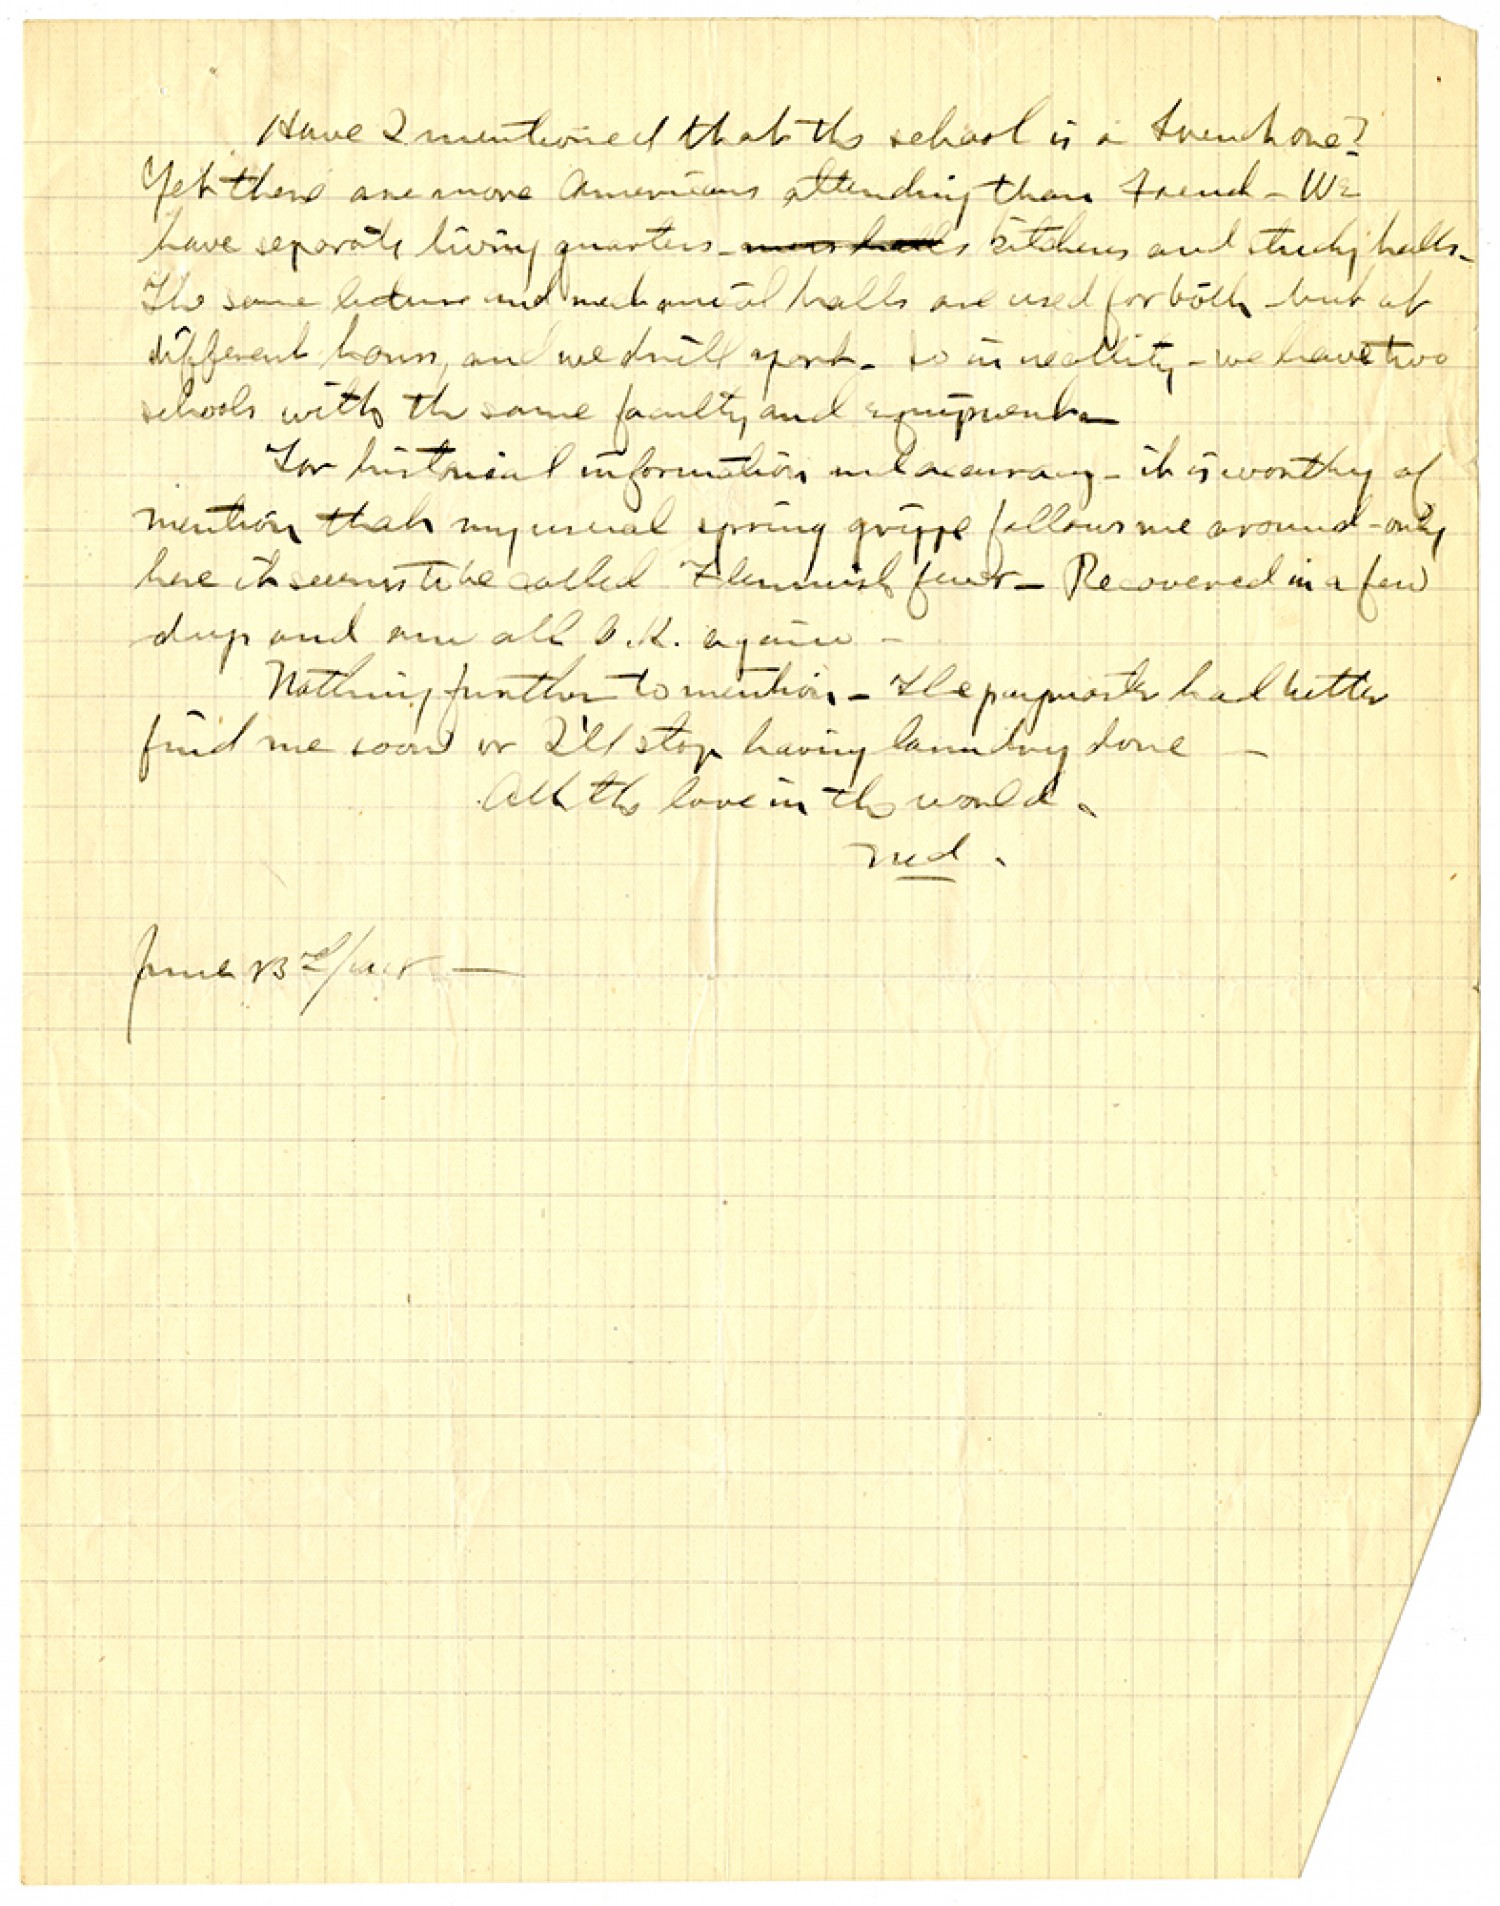 Have I mentioned that the school is a French one?
Yet there are more Americans attending than French - We
have separate living quarters - mess halls kitchens and study halls -
The same lecture and mechanical halls are used for both - but at
different hours, and we drill apart - So in reallity - we have two
schools with the same faculty and equipment -
For historical information and accuracy - it is worthy of
mention that my usual spring grippe follows me around - only
here it seems to be called Flemmish fever - Recovered in a few
days and am all O.K. again -
Nothing further to mention - The paymaster had better
find me soon or I'll stop having laundry done -
All the love in the world.
Ned.
June 23rd/